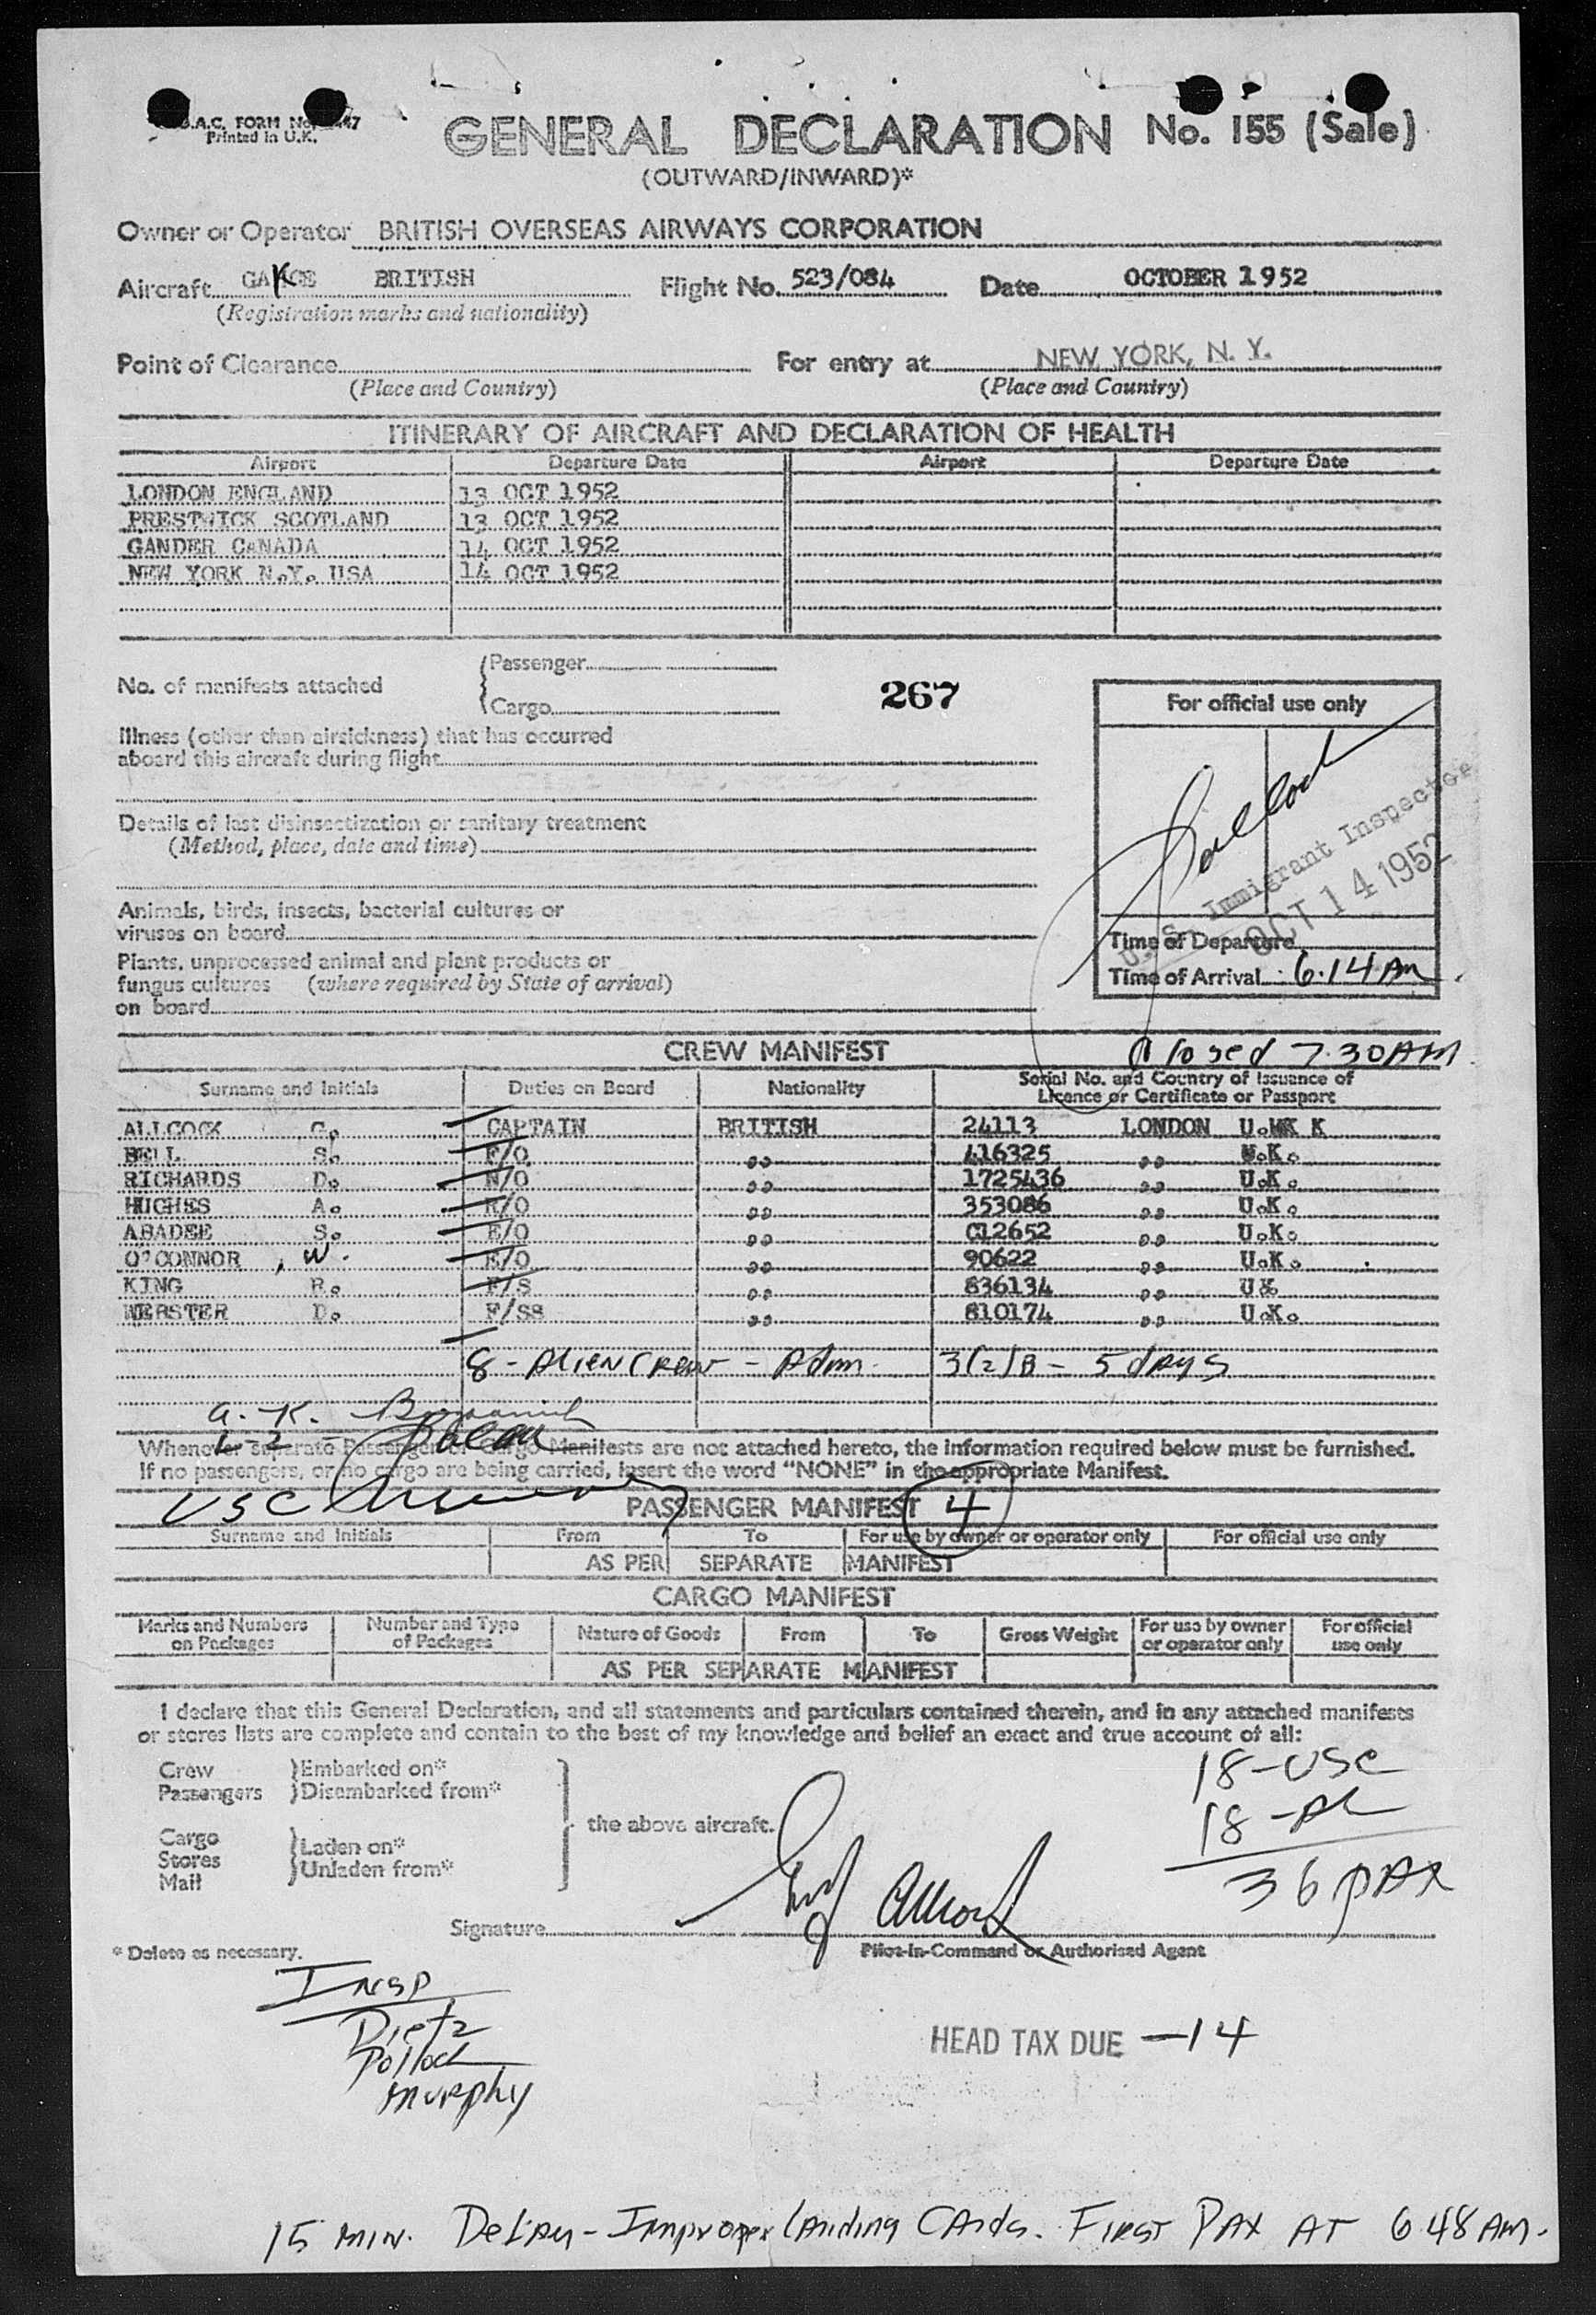 B.A.C. FORM No. 
Printed in U.K.
GENERAL DECLARATION No. 155 (Sale)
(OUTWARD/INWARD)*
Owner or Operator BRITISH OVERSEAS AIRWAYS CORPORATION
Aircraft BRITISH Flight No. 523/084 Date OCTOBER 1952
(Registration marks and nationality)
Point of Clearance For entry at NEW YORK, N. Y.
(Place and Country) (Place and Country)
ITINERARY OF AIRCRAFT AND DECLARATION OF HEALTH
Airport Departure Date Airport Departure Date
LONDON ENGLAND 13 OCT 1952
PRESTWICK SCOTLAND 13 OCT 1952
GANDER CANADA 14 OCT 1952
NEW YORK N.Y. USA 14 OCT 1952
No. of manifests attached
Passenger
Cargo
267
For official use only
Pollock
U.S. Immigrant Inspector
OCT 14 1952
Time of Departure
Time of Arrival 6.14 AM
Illness (other than airsickness) that has occurred
aboard this aircraft during flight
Details of last disinsectization or sanitary treatment
(Method, place, date and time)
Animals, birds, insects, bacterial cultures or
viruses on board
Plants, unprocessed animal and plant products or
fungus cultures (where required by State of arrival)
on board
CREW MANIFEST Closed 7.30 AM
Surname and Initials Duties on Board Nationality Serial No. and Country of Issuance of
Licence or Certificate or Passport
ALLCOCK G. CAPTAIN BRITISH 24113 LONDON U.K
BELL S. F/O ,, 416325 ,, U.K.
RICHARDS D. N/O ,, 1725436 ,, U.K.
HUGHES A. R/O ,, 353086 ,, U.K.
ABADEE S. E/O ,, C12652 ,, U.K.
O'CONNOR, W. E/O ,, 90622 ,, U.K.
KING R. F/S ,, 836134 ,, UK
WEBSTER D. F/SS ,, 810174 ,, U.K.
8 - ALIEN CREW - Adm. 3(2)B - 5 days
A. K.
Whenever separate Passenger or Cargo Manifests are not attached hereto, the information required below must be furnished.
If no passengers, or no cargo are being carried, insert the word "NONE" in the appropriate Manifest.
USC
PASSENGER MANIFEST 4
Surname and Initials From To For use by owner or operator only For official use only
AS PER SEPARATE MANIFEST
CARGO MANIFEST
Marks and Numbers on Packages Number and Type of Packages Nature of Goods From To Gross Weight For use by owner or operator only For official use only
AS PER SEPARATE MANIFEST
I declare that this General Declaration, and all statements and particulars contained therein, and in any attached manifests
or stores lists are complete and contain to the best of my knowledge and belief an exact and true account of all:
Crew Embarked on*
Passengers Disembarked from*
the above aircraft.
Cargo Laden on*
Stores Unladen from*
Mail
18-USC
18-AL
36 PAX
Signature Allcock
Pilot-in-Command or Authorised Agent
* Delete as necessary.
INSP
Dietz
Pollock
Murphy
HEAD TAX DUE - 14
15 MIN. Delay - Improper Landing Cards. First PAX AT 6 48 AM.